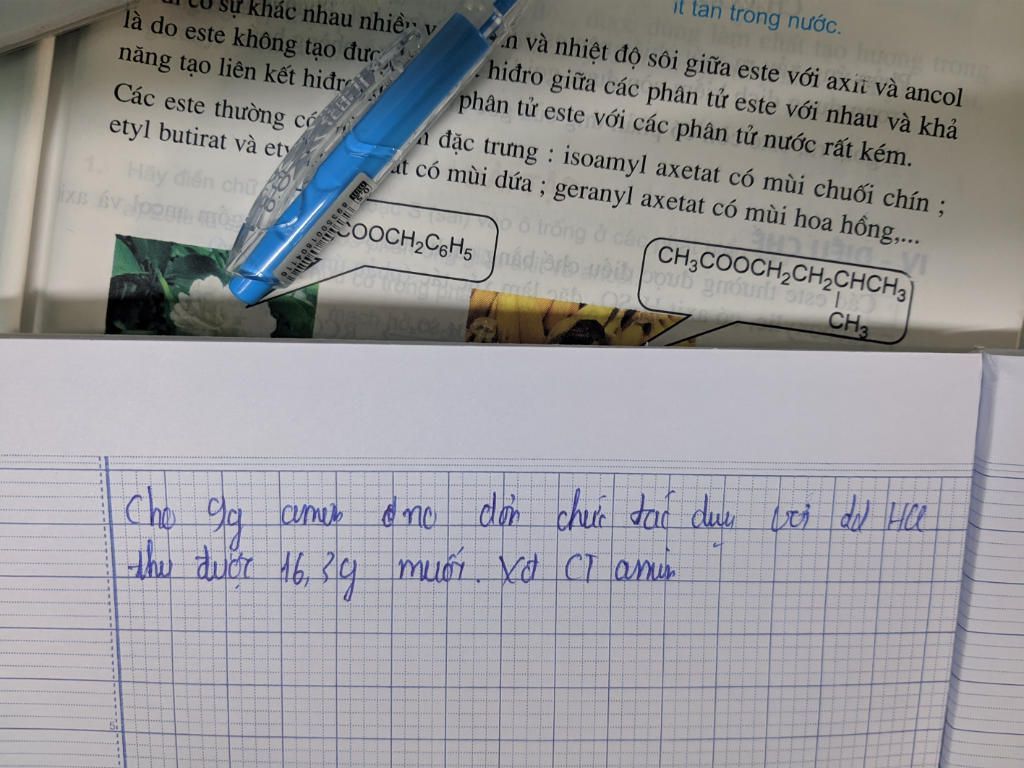 có sự khác nhau nhiều
ít tan trong nước.
là do este không tạo được và nhiệt độ sôi giữa este với axit và ancol
năng tạo liên kết hiđro hiđro giữa các phân tử este với nhau và khả
phân tử este với các phân tử nước rất kém.
Các este thường có đặc trưng : isoamyl axetat có mùi chuối chín ;
etyl butirat và có mùi dứa ; geranyl axetat có mùi hoa hồng,...
COOCH₂C₆H₅
CH₃COOCH₂CH₂CHCH₃
CH₃
Cho 9g amin no đơn chức tác dụng với dd HCl
thu được 16,3g muối. Xđ CT amin
5